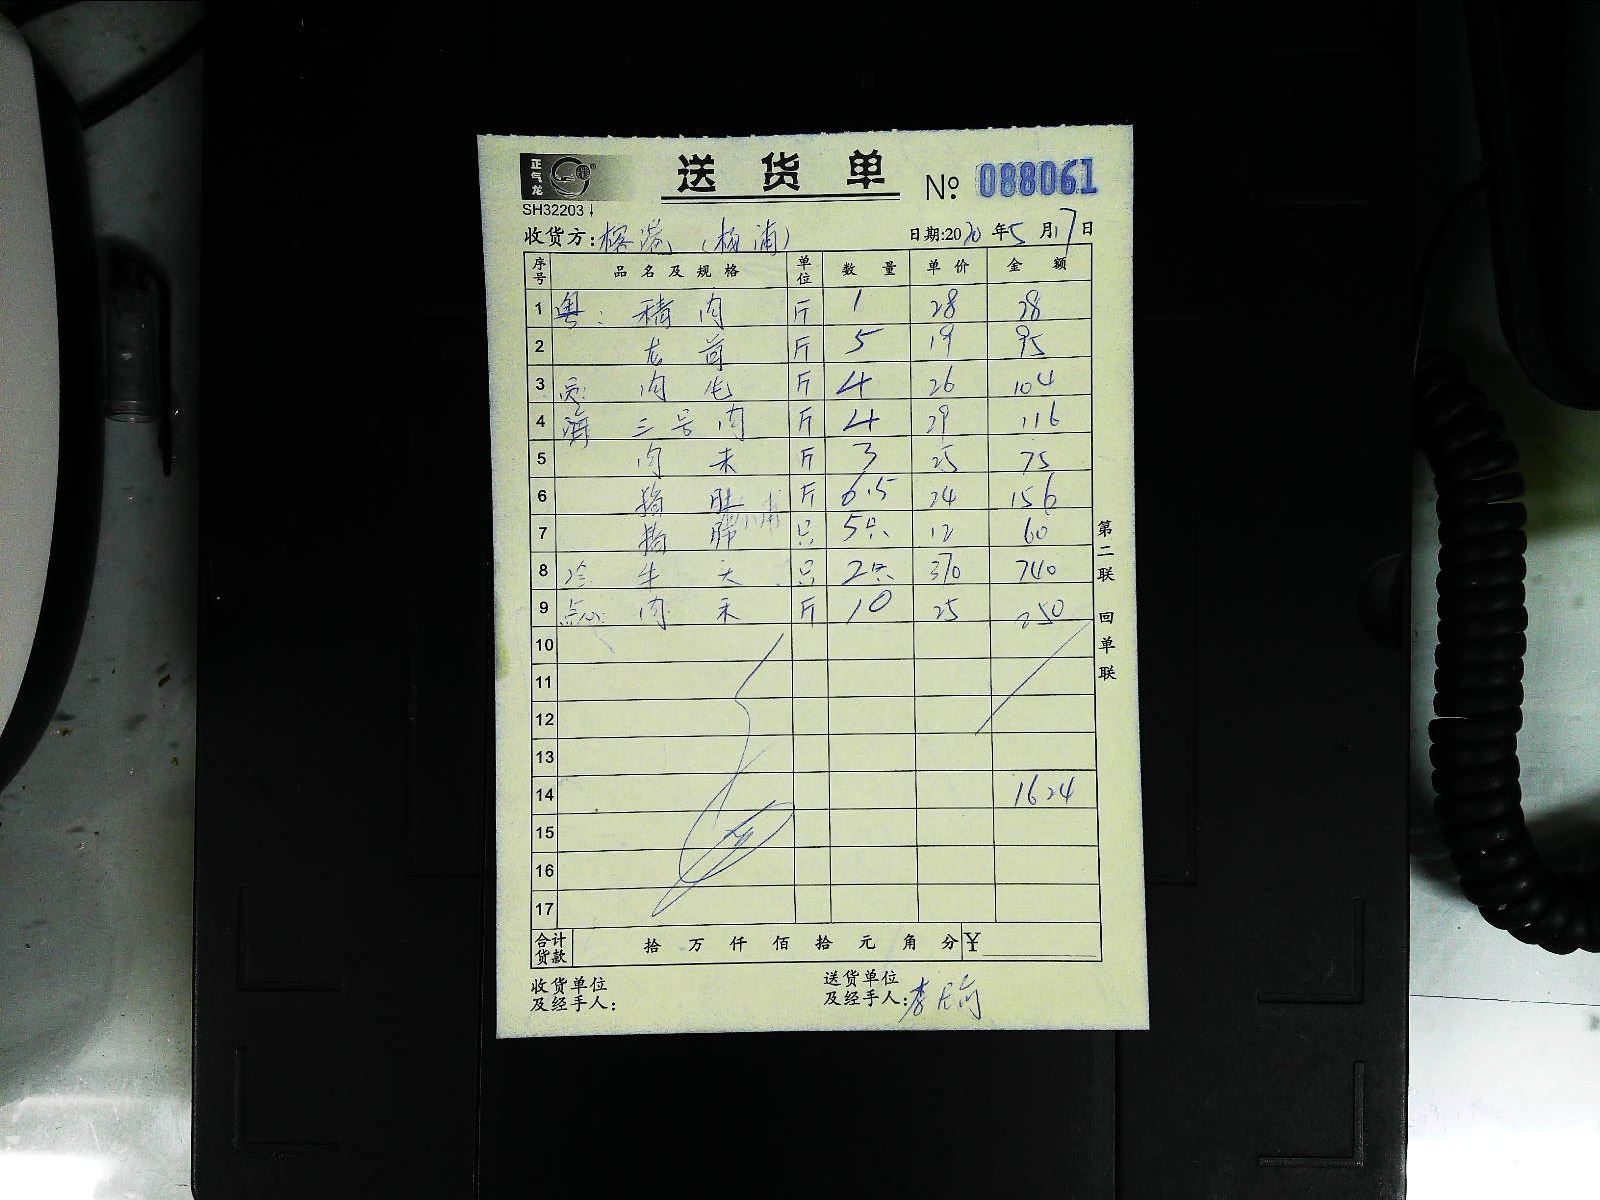 正气龙
送货单 № 088061
SH32203
收货方: (杨浦) 日期:2020年5月17日
序号 品名及规格 单位 数量 单价 金额
1 粤: 精肉 斤 1 28 28
2 斤 5 19 95
3 肉 斤 4 26 104
4 三号肉 斤 4 29 116
5 肉末 斤 3 25 75
6 斤 6.5 24 156
7 只 5只 12 60
8 冷 牛 只 2只 370 740
9 点心: 肉末 斤 10 25 250
10
11
12
13
14 1624
15
16
17
合计货款 拾 万 仟 佰 拾 元 角 分 ¥
收货单位及经手人:
送货单位及经手人: 李
第二联 回单联